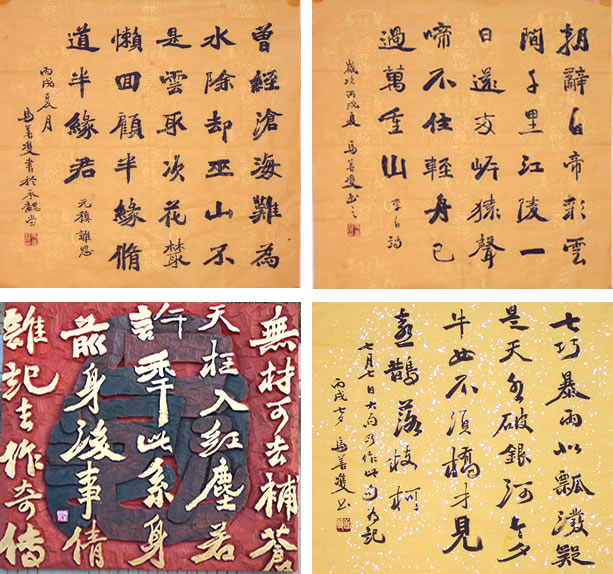 曾經滄海難為
水除却巫山不
是雲取次花叢
懶回顧半緣脩
道半緣君
元稹離思
丙戌夏月
馬善雙書於
朝辭白帝彩雲
間千里江陵一
日還兩岸猿聲
啼不住輕舟已
過萬重山
李白詩
歲次丙戌夏馬善雙書之
無材可去補蒼
天枉入紅塵若
許年此系身
前身後事倩
誰記去作奇傳
七巧暴雨似瓢潑疑
是天破銀河今夕
牛女不須橋才見
喜鵲落枝柯
七月七日大雨乃作此句為記
丙戌七夕馬善雙書